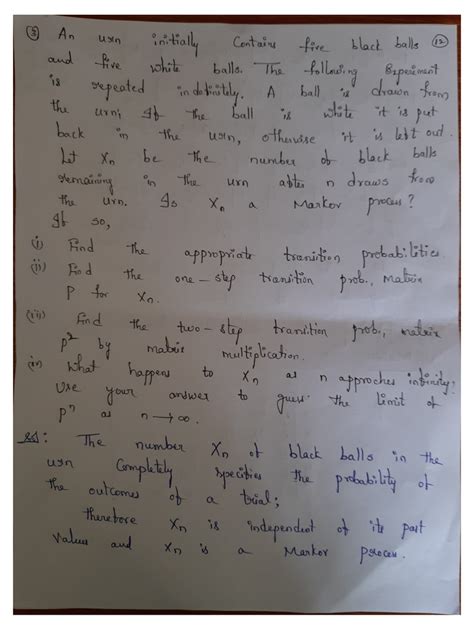 ③ An urn initially Contains five black balls ⑫
and five white balls. The following Experiment
is repeated indefinitely. A ball is drawn from
the urn; If the ball is white it is put
back in the urn, otherwise it is left out.
Let Xn be the number of black balls
remaining in the urn after n draws from
the urn. Is Xn a Markov process?
If so,
(i) Find the appropriate transition probabilities.
(ii) Find the one-step transition prob., Matrix
P for Xn.
(iii) Find the two-step transition prob., matrix
P² by matrix multiplication.
(iv) What happens to Xn as n approches infinity?
Use your answer to guess the limit of
Pⁿ as n→∞.
Sol: The number Xn of black balls in the
urn Completely specifies the probability of
the outcomes of a trial;
therefore Xn is independent of its past
values and Xn is a Markov process.